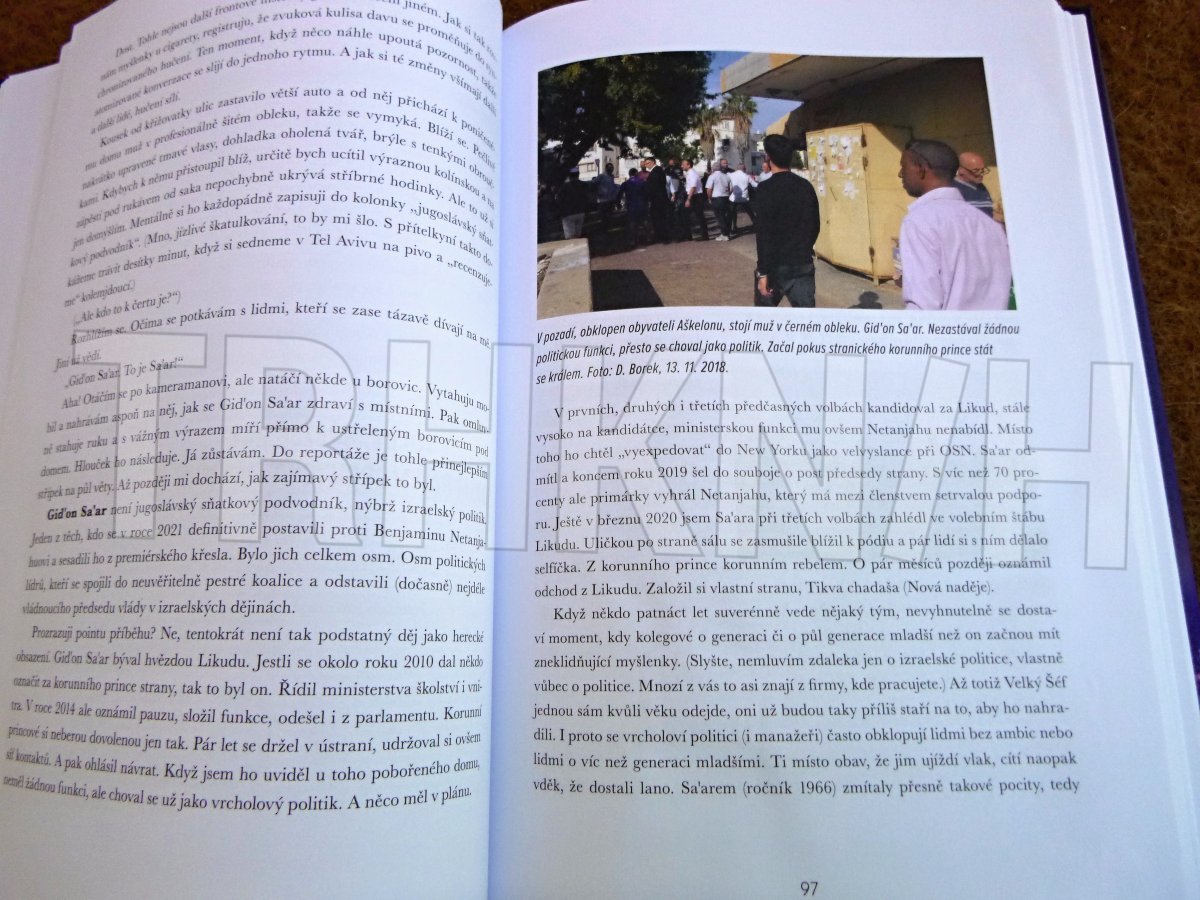 Dost. Tohle nejsou další frontové jiném. Jak si tak
nám myšlenky u cigarety, registruju, že zvuková kulisa davu se proměňuje do
chronizovaného hučení. Ten moment, kdy něco náhle upoutá pozornost, takže
atomizované konverzace se slijí do jednoho rytmu. A jak si té změny všímají další
a další lidé, hučení sílí.
Kousek od křižovatky ulic zastavilo větší auto a od něj přichází k poničené-
mu domu muž v profesionálně šitém obleku, takže se vymyká. Blíží se. Pečlivě
nakrátko upravené tmavé vlasy, dohladka oholená tvář, brýle s tenkými obrouč-
kami. Kdybych k němu přistoupil blíž, určitě bych ucítil výraznou kolínskou a na
zápěstí pod rukávem od saka nepochybně ukrývá stříbrné hodinky. Ale to už si
jen domýšlím. Mentálně si ho každopádně zapisuji do kolonky „jugoslávský sňat-
kový podvodník“. (Mno, jízlivé škatulkování, to by mi šlo. S přítelkyní takto do-
kážeme trávit desítky minut, když si sedneme v Tel Avivu na pivo a „recenzuje-
me“ kolemjdoucí.)
„Ale kdo to k čertu je?“)
Rozhlížím se. Očima se potkávám s lidmi, kteří se zase tázavě dívají na mě.
Jiní už vědí.
„Gid'on Sa'ar. To je Sa'ar!“
Aha! Otáčím se po kameramanovi, ale natáčí někde u borovic. Vytahuju mo-
bil a nahrávám aspoň na něj, jak se Gid'on Sa'ar zdraví s místními. Pak omluv-
ně stahuje ruku a s vážným výrazem míří přímo k ustřeleným borovicím pod
domem. Hlouček ho následuje. Já zůstávám. Do reportáže je tohle přinejlepším
střípek na půl věty. Až později mi dochází, jak zajímavý střípek to byl.
Gid'on Sa'ar není jugoslávský sňatkový podvodník, nýbrž izraelský politik.
Jeden z těch, kdo se v roce 2021 definitivně postavili proti Benjaminu Netanja-
huovi a sesadili ho z premiérského křesla. Bylo jich celkem osm. Osm politických
lídrů, kteří se spojili do neuvěřitelně pestré koalice a odstavili (dočasně) nejdéle
vládnoucího předsedu vlády v izraelských dějinách.
Prozrazuji pointu příběhu? Ne, tentokrát není tak podstatný děj jako herecké
obsazení. Gid'on Sa'ar býval hvězdou Likudu. Jestli se okolo roku 2010 dal někdo
označit za korunního prince strany, tak to byl on. Řídil ministerstva školství i vni-
tra. V roce 2014 ale oznámil pauzu, složil funkce, odešel i z parlamentu. Korunní
princové si neberou dovolenou jen tak. Pár let se držel v ústraní, udržoval si ovšem
síť kontaktů. A pak ohlásil návrat. Když jsem ho uviděl u toho pobořeného domu,
neměl žádnou funkci, ale choval se už jako vrcholový politik. A něco měl v plánu.
V pozadí, obklopen obyvateli Aškelonu, stojí muž v černém obleku. Gid'on Sa'ar. Nezastával žádnou
politickou funkci, přesto se choval jako politik. Začal pokus stranického korunního prince stát
se králem. Foto: D. Borek, 13. 11. 2018.
V prvních, druhých i třetích předčasných volbách kandidoval za Likud, stále
vysoko na kandidátce, ministerskou funkci mu ovšem Netanjahu nenabídl. Místo
toho ho chtěl „vyexpedovat“ do New Yorku jako velvyslance při OSN. Sa'ar od-
mítl a koncem roku 2019 šel do souboje o post předsedy strany. S víc než 70 pro-
centy ale primárky vyhrál Netanjahu, který má mezi členstvem setrvalou podpo-
ru. Ještě v březnu 2020 jsem Sa'ara při třetích volbách zahlédl ve volebním štábu
Likudu. Uličkou po straně sálu se zasmušile blížil k pódiu a pár lidí si s ním dělalo
selfíčka. Z korunního prince korunním rebelem. O pár měsíců později oznámil
odchod z Likudu. Založil si vlastní stranu, Tikva chadaša (Nová naděje).
Když někdo patnáct let suverénně vede nějaký tým, nevyhnutelně se dosta-
ví moment, kdy kolegové o generaci či o půl generace mladší než on začnou mít
zneklidňující myšlenky. (Slyšte, nemluvím zdaleka jen o izraelské politice, vlastně
vůbec o politice. Mnozí z vás to asi znají z firmy, kde pracujete.) Až totiž Velký Šéf
jednou sám kvůli věku odejde, oni už budou taky příliš staří na to, aby ho nahra-
dili. I proto se vrcholoví politici (i manažeři) často obklopují lidmi bez ambic nebo
lidmi o víc než generaci mladšími. Ti místo obav, že jim ujíždí vlak, cítí naopak
vděk, že dostali lano. Sa'arem (ročník 1966) zmítaly přesně takové pocity, tedy
97
TRHKNIH